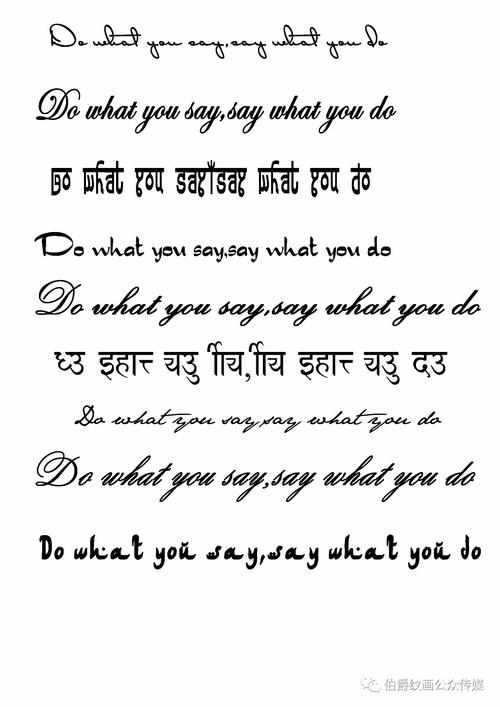 Do what you say,say what you do
Do what you say,say what you do
Do what you say,say what you do
Do what you say,say what you do
Do what you say,say what you do
दउ
Do what you say,say what you do
Do what you say,say what you do
Do what you say,say what you do
伯爵纹画公众传媒